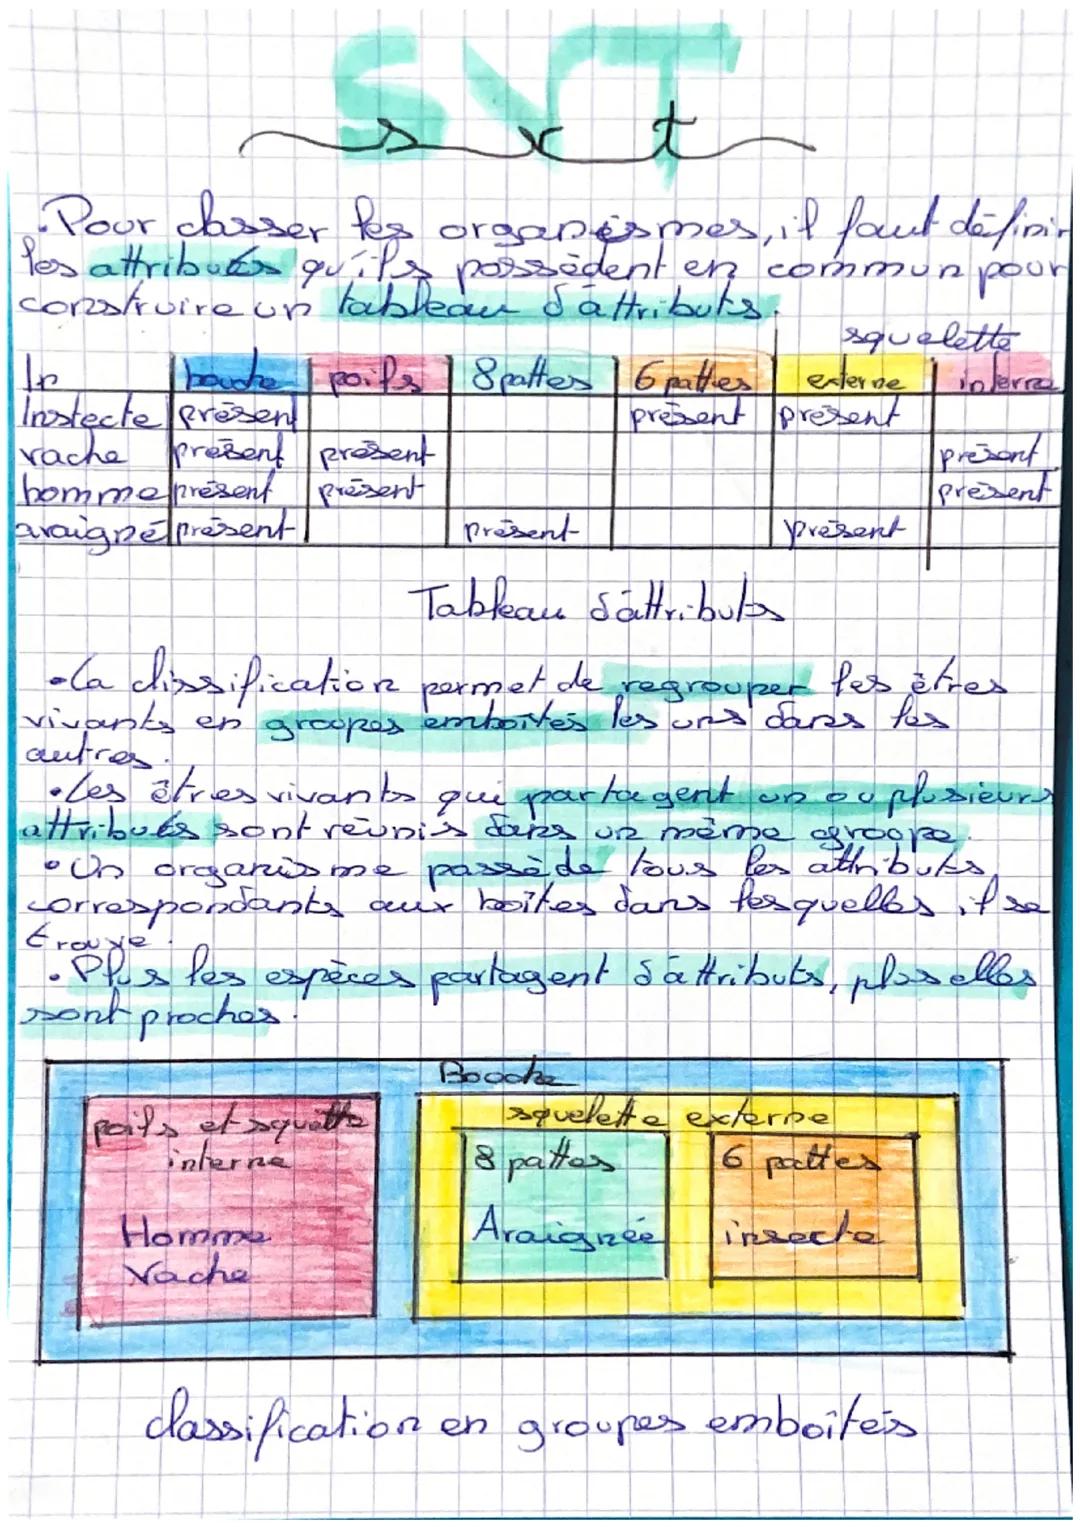 SVT
svt
• Pour classer les organismes, il faut définir
les attributs qu'ils possèdent en commun pour
construire un tableau d'attributs.
squelette
In bouche poils 8 pattes 6 pattes externe interne
Instecte présent présent présent
vache présent présent présent
homme présent présent présent
araigné présent présent présent
Tableau d'attributs
• La classification permet de regrouper les êtres
vivants en groupes emboîtés les uns dans les
autres.
• Les êtres vivants qui partagent un ou plusieurs
attributs sont réunis dans un même groope.
• Un organisme passède tous les attributs
correspondants aux boîtes dans lesquelles il se
trouve.
• Plus les espèces partagent d'attributs, plus elles
sont proches.
Booche
poils et squette
interne
Homme
Vache
squelette externe
8 pattes
Araignée
6 pattes
insecte
classification en groupes emboîtés